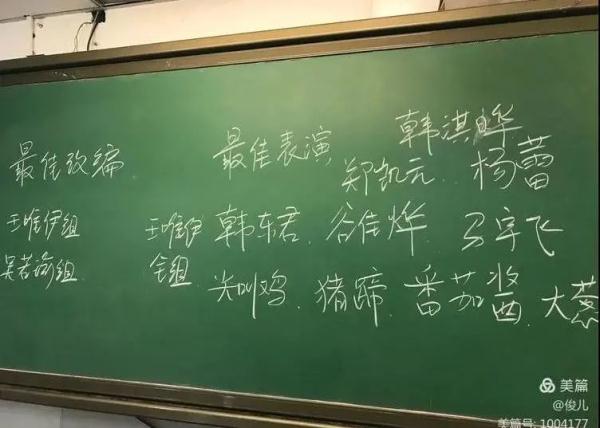 韩淇晔
最佳改编 最佳表演 郑凯元. 杨蕾
王唯伊组 王唯伊 韩东君. 谷佳烨. 马宇飞
吴若瑜组 全组. 尖叫鸡. 猪蹄. 番茄酱. 大葱
美篇
@俊儿
美篇号: 1004177